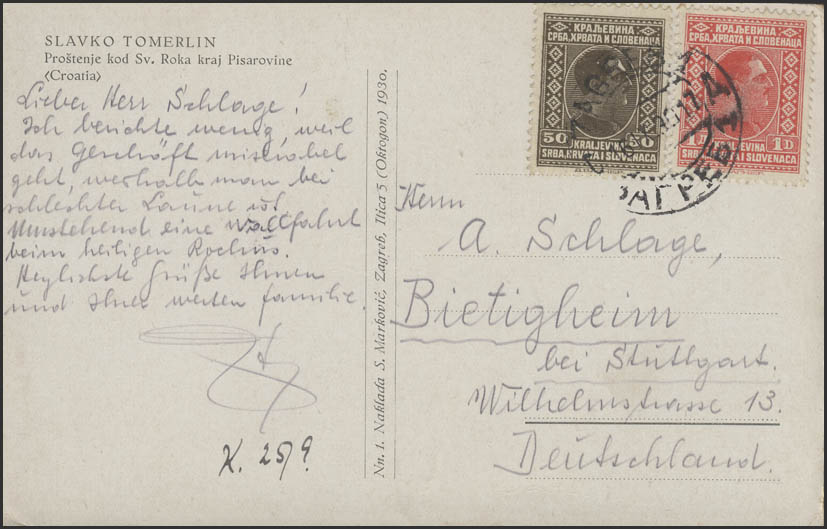 SLAVKO TOMERLIN
Proštenje kod Sv. Roka kraj Pisarovine
(Croatia)
Lieber Herr Schlage!
Ich berichte wenig, weil
das Geschäft miserabel
geht, weshalb man bei
schlechter Laune ist.
Umstehend eine Wallfahrt
beim heiligen Rochus.
Herzlichste Grüße Ihnen
und Ihrer werten Familie.
K. 25/9.
Nn. 1. Naklada S. Marković, Zagreb, Ilica 5 (Oktogon) 1930.
КРАЉЕВИНА
СРБА, ХРВАТА И СЛОВЕНАЦА
50 50
KRALJEVINA
SRBA, HRVATA I SLOVENACA
КРАЉЕВИНА
СРБА, ХРВАТА И СЛОВЕНАЦА
1Д 1D
KRALJEVINA
SRBA, HRVATA I SLOVENACA
ЗАГРЕБ 1
Herrn
A. Schlage,
Bietigheim
bei Stuttgart.
Wilhelmstrasse 13.
Deutschland.